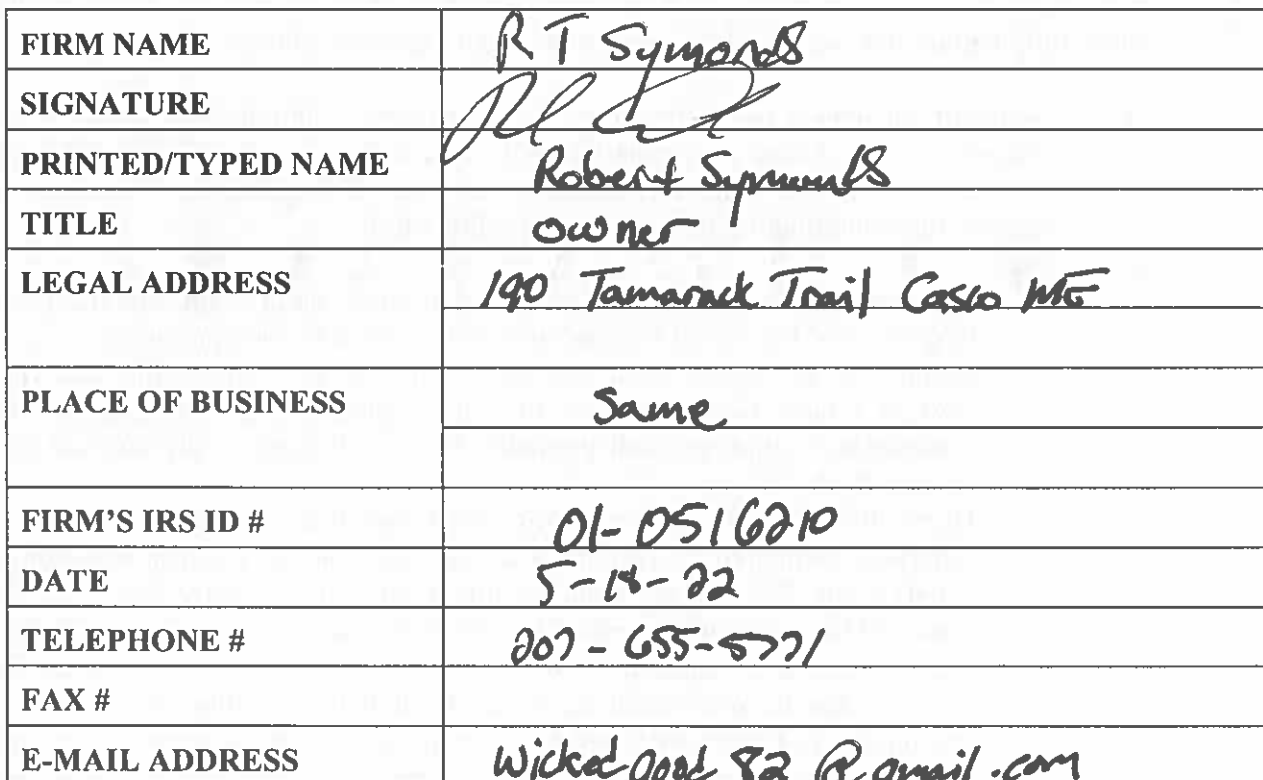 FIRM NAME RT Symonds
SIGNATURE
PRINTED/TYPED NAME Robert Symonds
TITLE owner
LEGAL ADDRESS 190 Tamarack Trail Casco ME
PLACE OF BUSINESS Same
FIRM'S IRS ID # 01-0516210
DATE 5-18-22
TELEPHONE # 207-655-5771
FAX #
E-MAIL ADDRESS wickedgood82@gmail.com